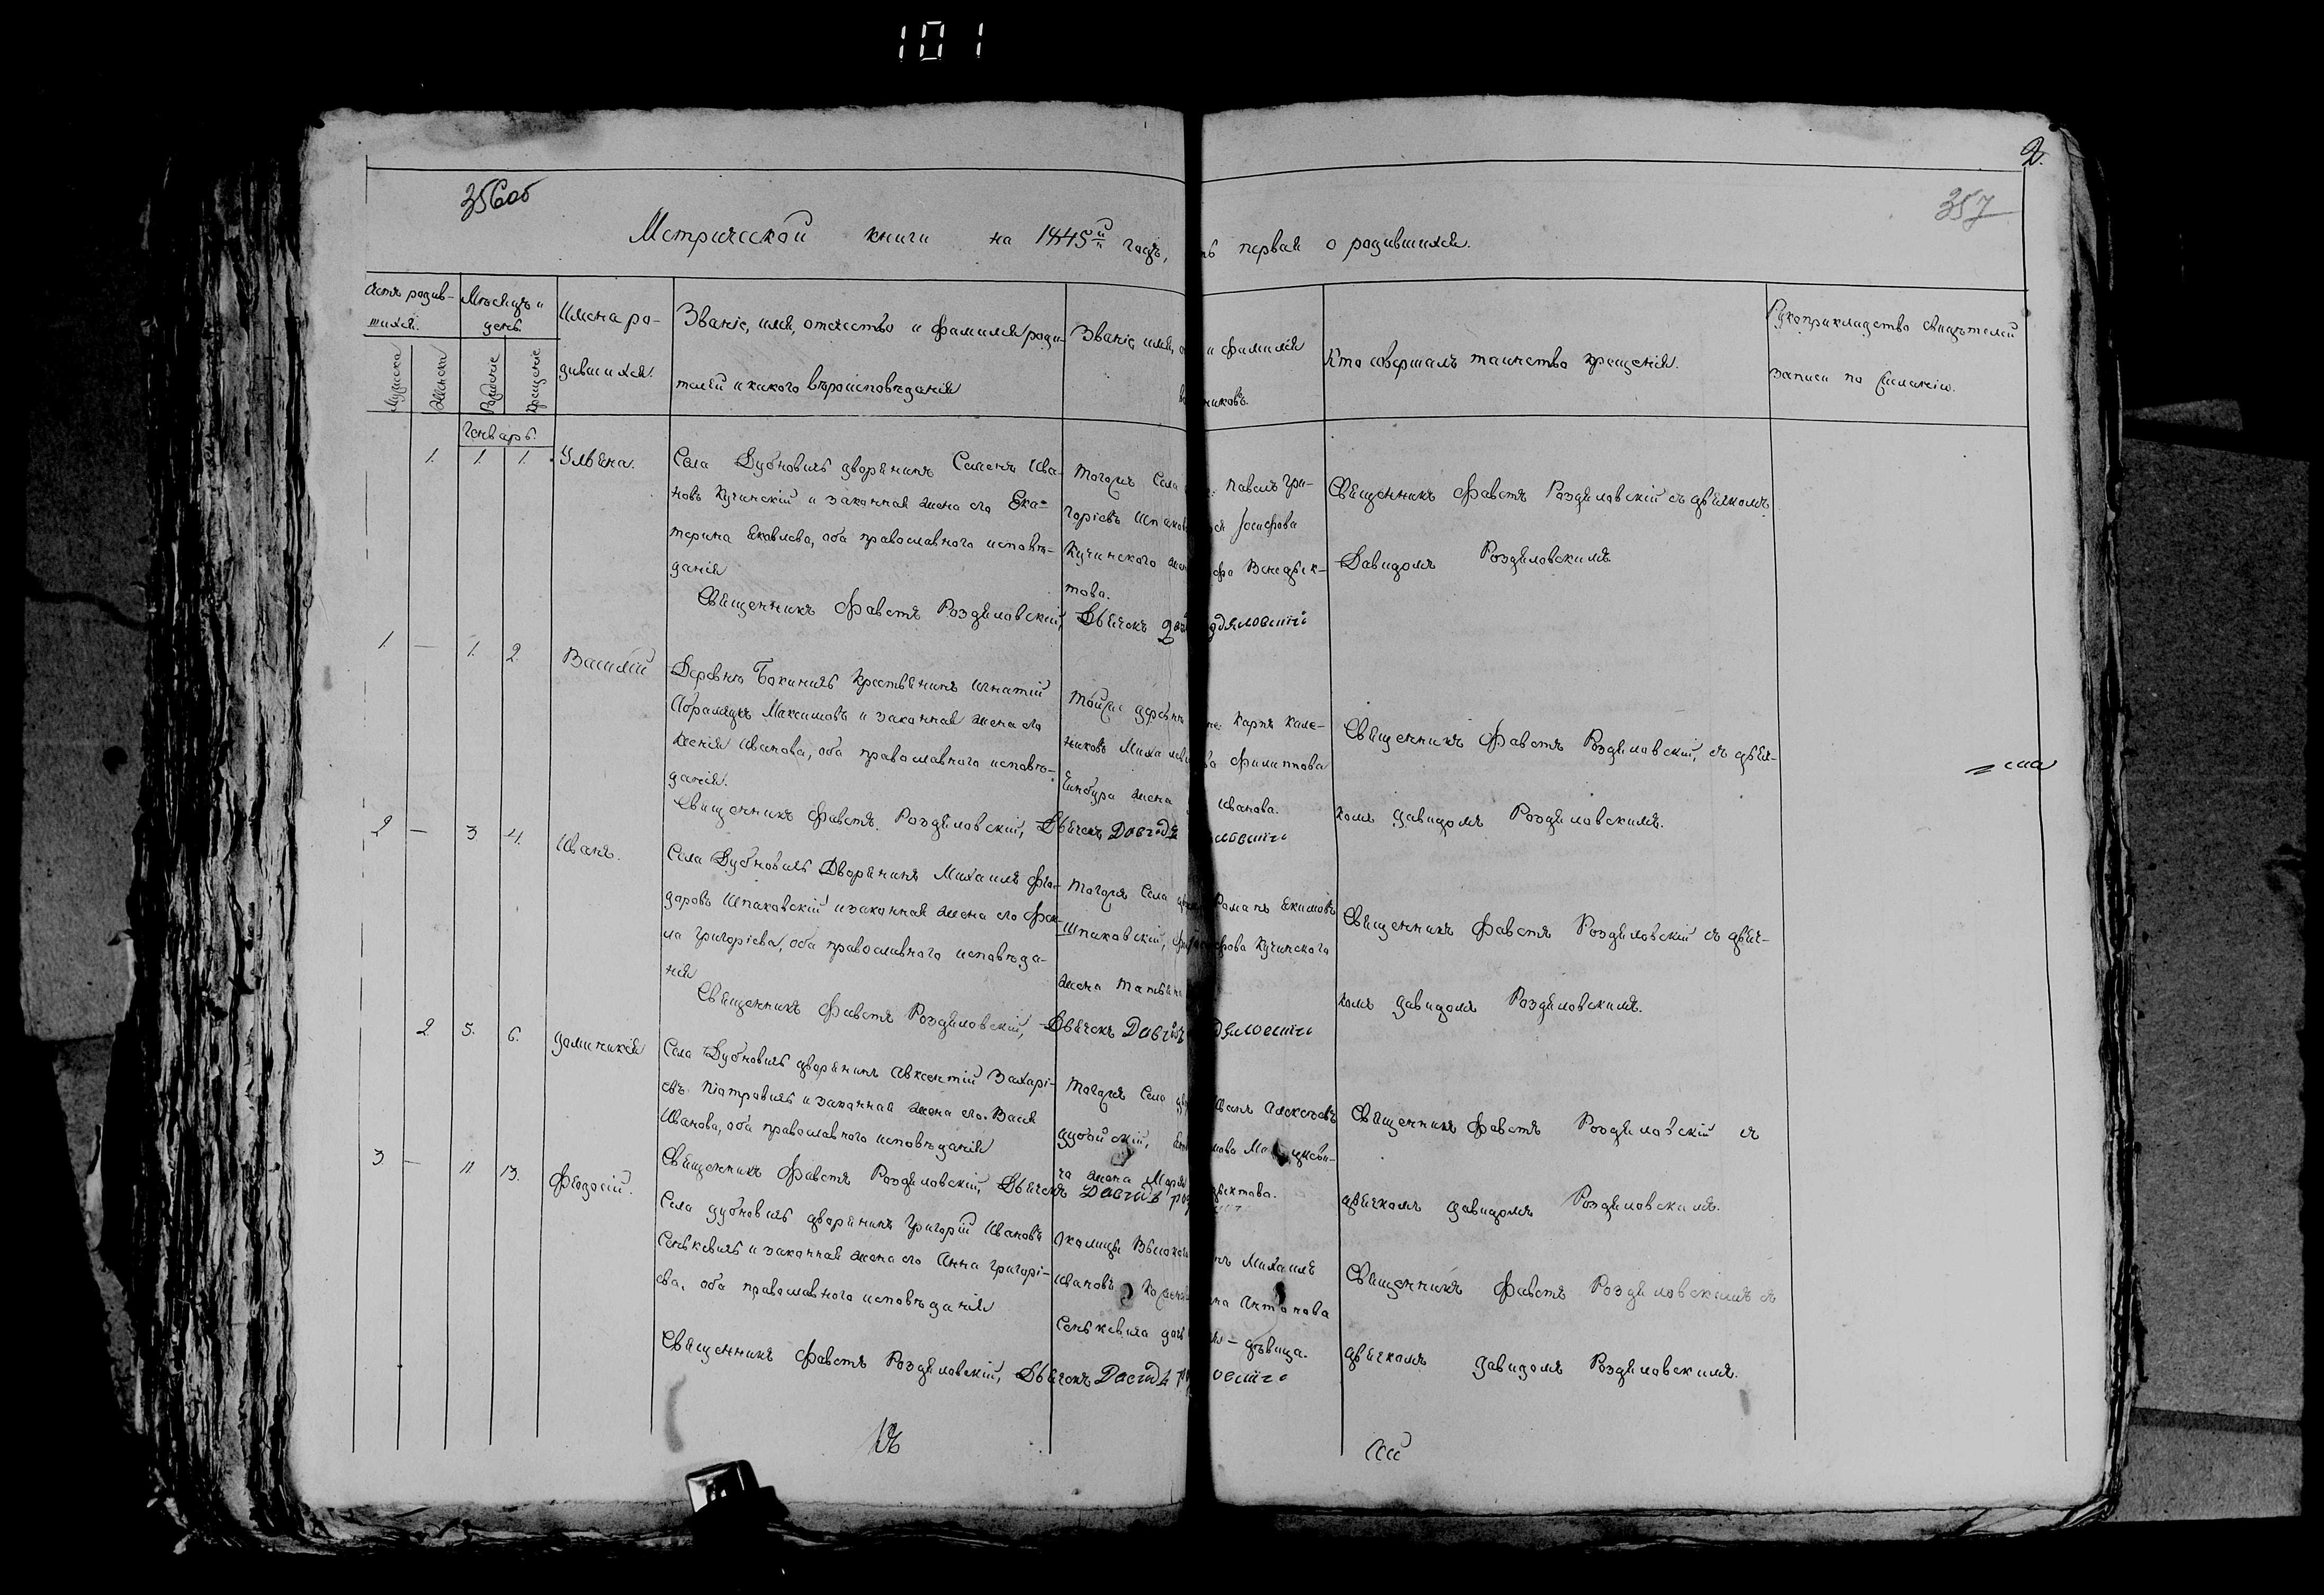 101
2.
356об
357
Метрической книги на 1845й годъ, ть первая о родившихся.
Счетъ родив-
шихся.
Мужеска
Женска
Мѣсяцъ и
день.
Рожденіе
Крещеніе
Имена ро-
дившихся.
Званіе, имя, отчество и фамилія роди-
телей и какого вѣроисповѣданія
Званіе, имя, о и фамилія
никовъ.
Кто совершалъ таинство крещенія.
Рукоприкладство свидѣтелей
записи по желанію.
Генварь.
1. 1. 1. Ульяна.
Села Дубновичъ дворянинъ Семенъ Ива-
новъ Кучинскій и законная жена его Ека-
терина Яковлева, оба православного исповѣ-
данія
Священникъ Фавстъ Роздяловскій,
Тогожъ Села Павелъ Гри-
горіевъ Осифова
Кучинского Венедык-
това.
Дьячокъ
Священникъ Фавстъ Роздяловскій съ дьячкомъ
Давидомъ Роздяловскимъ.
1 — 1. 2. Василій
Деревнѣ Бокиничъ Крестьянинъ Игнатій
Абрамядъ Максимовъ и законная жена его
Ксенія Иванова, оба православного исповѣ-
данія.
Священникъ Фавстъ Роздяловскій,
Тойже деревни Карпъ Кале-
никовъ Филиппова
жена Иванова.
Дьячокъ Давидъ
Священникъ Фавстъ Роздяловскій, съ дьяч-
комъ Давидомъ Роздяловскимъ.
2 — 3. 4. Иванъ.
Села Дубновичъ Дворянинъ Михаилъ Фео-
доровъ Шпаковскій и законная жена его Фек-
ла Григоріева, оба православного исповѣда-
нія
Священникъ Фавстъ Роздяловскій,
Тогожъ Села Романъ Екимовъ
Шпаковскій, Кучинского
жена Татьяна
Дьячокъ Давидъ
Священникъ Фавстъ Роздяловскій съ дьяч-
комъ Давидомъ Роздяловскимъ.
2 5. 6. Доминикія
Села Дубновичъ дворянинъ Авксентій Захарі-
евъ Піотровичъ и законная жена его Васса
Иванова, оба православного исповѣданія
Священникъ Фавстъ Роздяловскій,
Тогожъ Села Иванъ Алексѣевъ
Дубойскій,
ча жена Марья
Дьячокъ Давидъ
Священникъ Фавстъ Роздяловскій съ
дьячкомъ Давидомъ Роздяловскимъ.
3 — 11 13. Феодосій.
Села Дубновичъ дворянинъ Григорій Ивановъ
Сенькевичъ и законная жена его Анна Григорі-
ева, оба православного исповѣданія
Священникъ Фавстъ Роздяловскій,
Околицы Михаилъ
Ивановъ на Антонова
Сенькевича дочь — дѣвица.
Дьячокъ Давидъ
Священникъ Фавстъ Роздяловскимъ съ
дьячкомъ Давидомъ Роздяловскимъ.